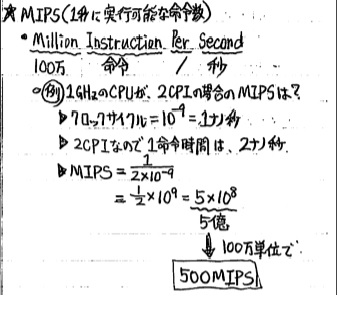 ★ MIPS(1秒に実行可能な命令数)
• Million Instruction Per Second
100万 命令 / 秒
○例 1GHzのCPUが、2CPIの場合のMIPSは?
▷クロックサイクル=10⁻⁹=1ナノ秒
▷2CPIなので1命令時間は、2ナノ秒.
▷MIPS=1/2×10⁻⁹
=1/2×10⁹=5×10⁸
5億
↓100万単位で.
500MIPS